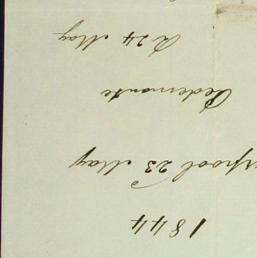 1844
rpool 23 May
Pedemonte
R 24 May